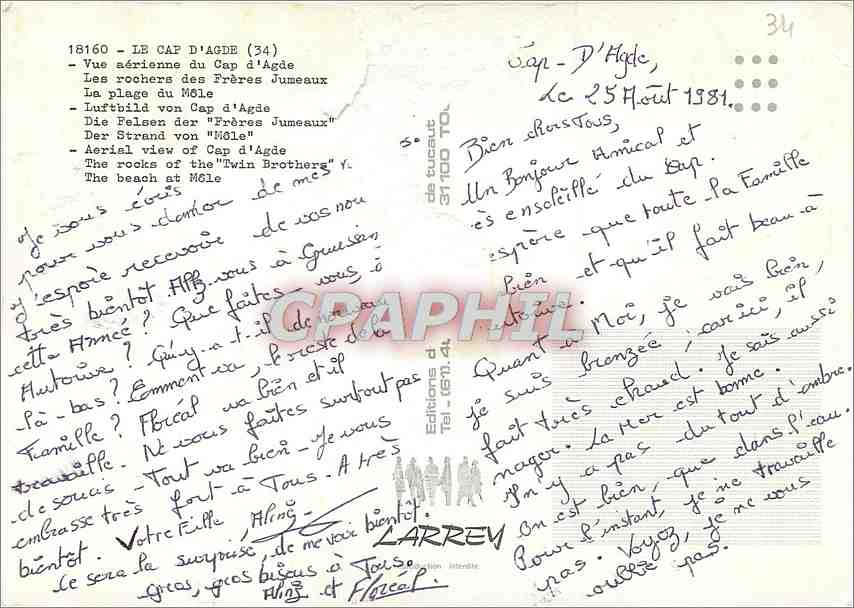 34
18160 - LE CAP D'AGDE (34)
- Vue aérienne du Cap d'Agde
Les rochers des Frères Jumeaux
La plage du Môle
- Luftbild von Cap d'Agde
Die Felsen der "Frères Jumeaux"
Der Strand von "Môle"
- Aerial view of Cap d'Agde
The rocks of the "Twin Brothers"
The beach at Môle
Cap - D'Agde,
Le 25 Août 1981.
Bien chers Tous,
Un Bonjour Amical et
ès ensoleillé du Cap.
spère que toute la Famille
bien et qu'il fait beau à
utoire.
Quant à Moi, je vais bien,
je suis bronzée, car ici, il
fait très chaud. Je sais aussi
nager. La Mer est bonne.
Il n'y a pas du tout d'ombre.
On est bien, que dans l'eau.
Pour l'instant, je ne travaille
pas. Voyez, je ne vous
oublie pas.
Je vous écris
pour vous donner de mes
J'espère recevoir de vos nou
très bientôt. Allez vous à Gruissan
cette Année? Que faites-vous, à
Autoire? Qu'y-a-t-il de nouveau
là-bas? Comment va, le reste de la
Famille? Floréal va bien et il
travaille. Ne vous faites surtout pas
de soucis - Tout va bien - Je vous
embrasse très fort à Tous - A très
bientôt. Votre Fille, Aline -
Ce sera la surprise, de me voir bientôt.
Gros, gros bisous à Tous.
Aline et Floréal.
de tucaut
31100 TOU
Editions d
Tel - (61).4
LARREY
oduction interdite
CPAPHIL